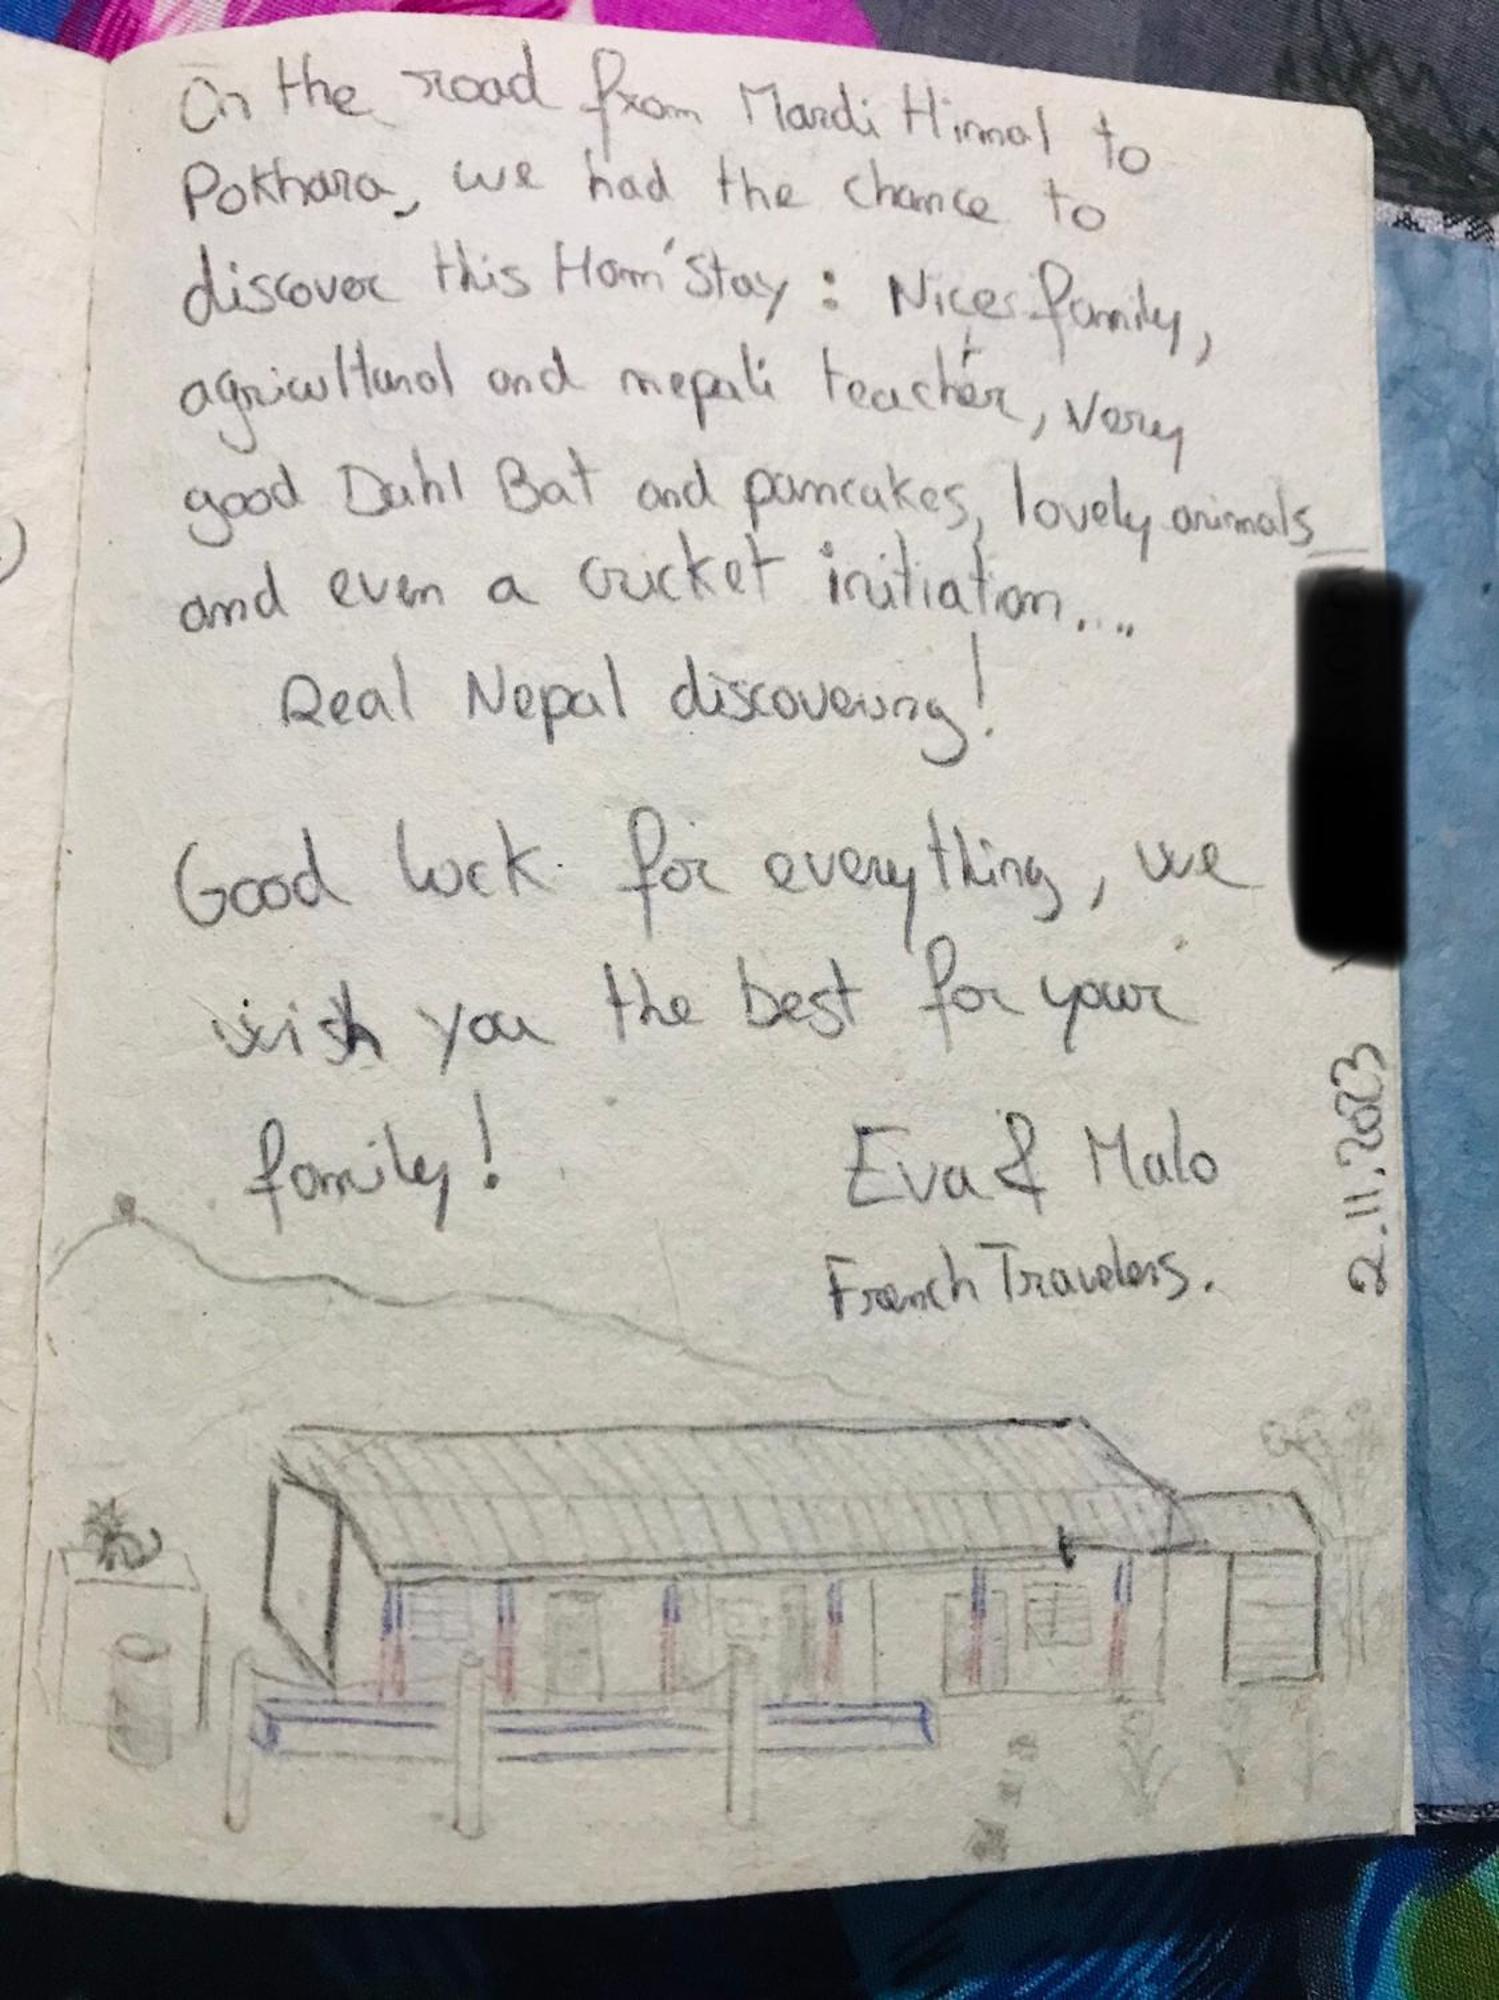 On the road from Mardi Himal to
Pokhara, we had the chance to
discover this Hom'Stay : Nicest family,
agricultural and nepali teacher, very
good Dahl Bat and pancakes, lovely animals
and even a cricket initiation....
Real Nepal discovering!
Good luck for everything, we
wish you the best for your
family!
Eva & Malo
French Travelers.
2.11.2023